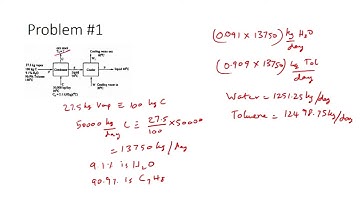 Problem #1
Condenser
Cooler
Cooling water out
60°C
27.5 kg Vap ≡ 100 kg C
50000 kg/day C ≡ 27.5/100 × 50000
= 13750 kg/day
9.1% is H₂O
90.9% is C₇H₈
(0.091 × 13750) kg H₂O/day
(0.909 × 13750) kg Tol/day
Water = 1251.25 kg/day
Toluene = 12498.75 kg/day